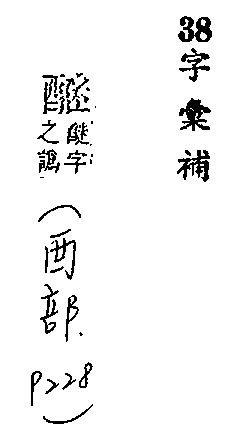 38
字彙補
之譌
(酉部.
P228)